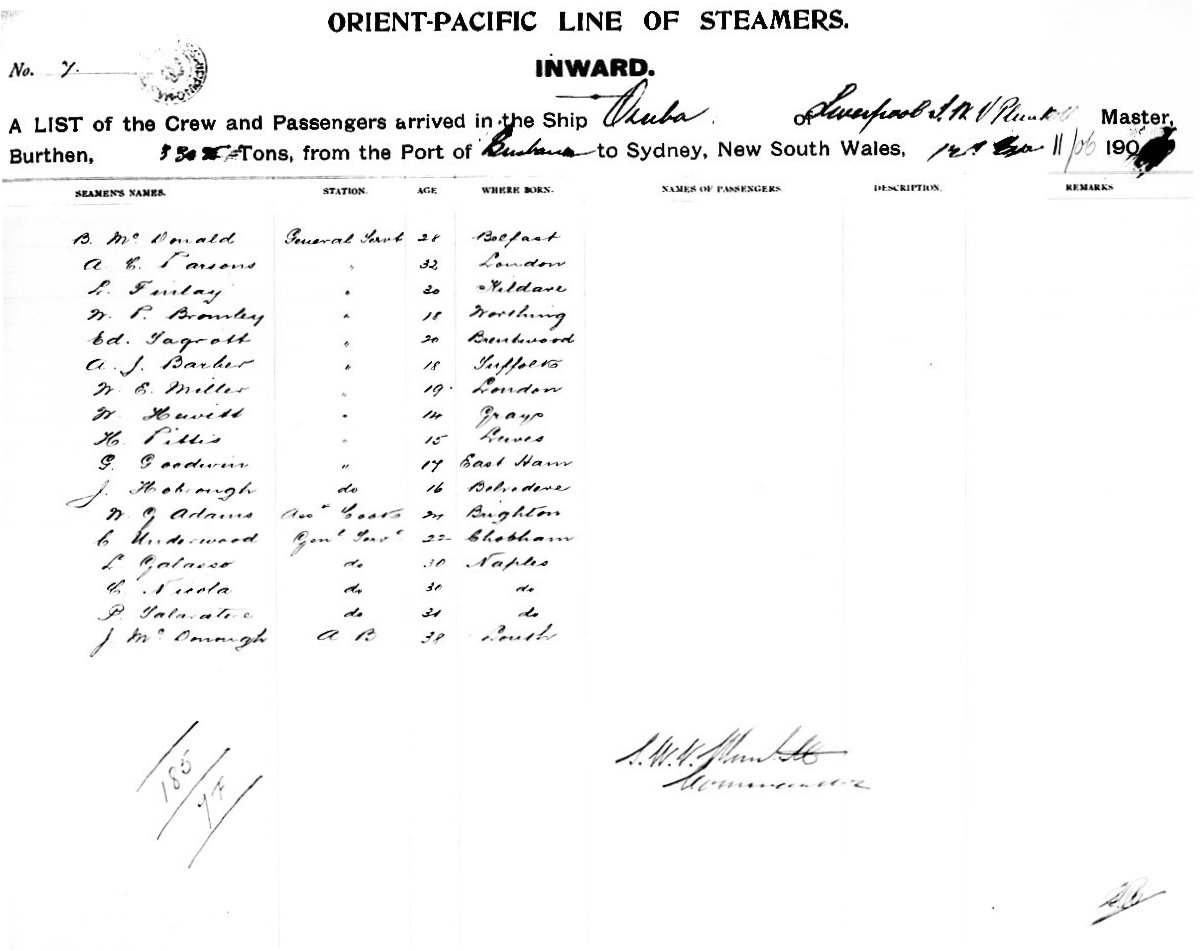 ORIENT-PACIFIC LINE OF STEAMERS.
No. 7.
INWARD.
A LIST of the Crew and Passengers arrived in the Ship Oruba of Liverpool Master,
Burthen, Tons, from the Port of Brisbane to Sydney, New South Wales, 11/06 190
SEAMEN'S NAMES. STATION. AGE WHERE BORN. NAMES OF PASSENGERS DESCRIPTION. REMARKS
B. Mc Donald General Servt 28 Belfast
A. E. Parsons " 32 London
L. Finlay " 30 Kildare
W. P. Bromley " 18 Worthing
Ed. " 20 Brentwood
A. J. Barber " 18 Suffolk
W. E. Miller " 19 London
W. Hewitt " 14 Grays
H. Pittis " 15
G. Goodwin " 17 East Ham
J. Hobrough do 16 Belvedere
W. G Adams Asst Cook Brighton
C Underwood Genl Servt 22 Chobham
L Galasso do 30 Naples
C Nicola do 30 do
P. do do
J. Mc Donough A B 38 Louth
185
77
Commander